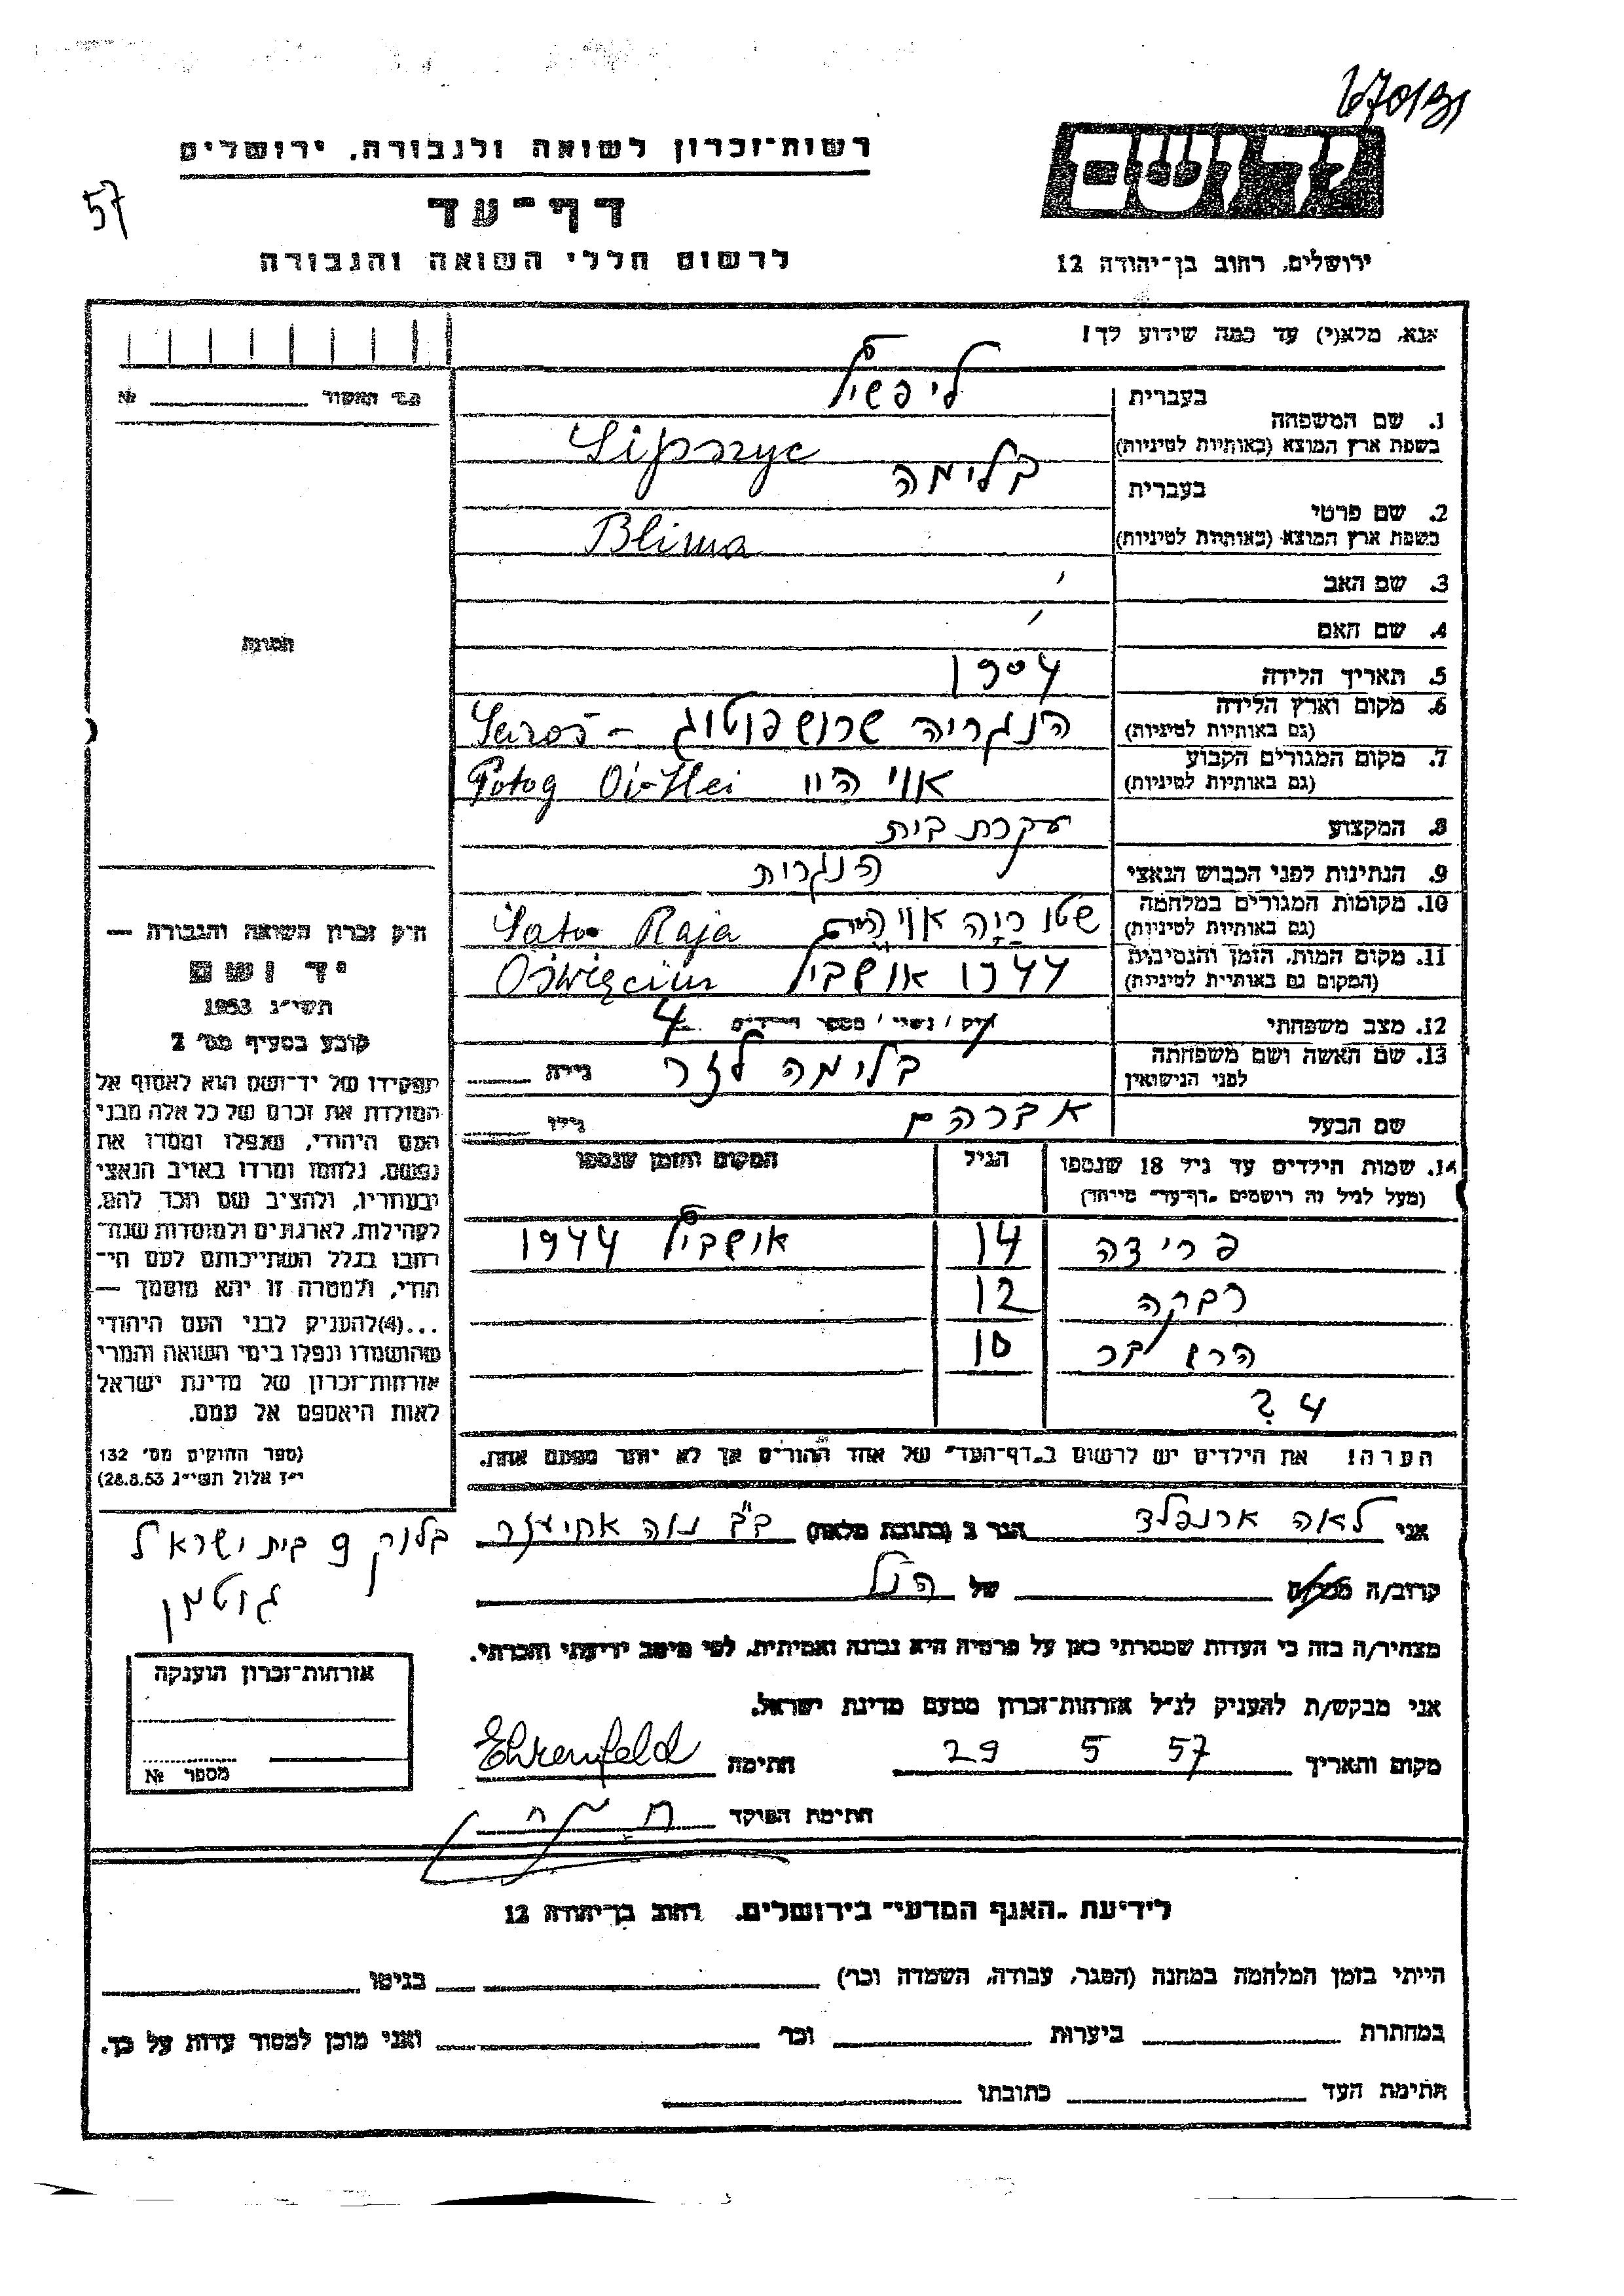 67013/
רשות־זכרון לשואה ולגבורה, ירושלים
57
דף־עד
לרשום חללי השואה והגבורה
ירושלים, רחוב בן־יהודה 12
אנא, מלא(י) עד כמה שידוע לך!
№
בעברית
1. שם המשפחה
ליפשיץ
בשפת ארץ המוצא (באותיות לטיניות)
Lipszyc
בעברית
בלימה
2. שם פרטי
בשפת ארץ המוצא (באותיות לטיניות)
Blima
3. שם האב
4. שם האם
5. תאריך הלידה
1904
6. מקום וארץ הלידה
(גם באותיות לטיניות)
הנגריה שרושפוטוג Saros-
7. מקום המגורים הקבוע
(גם באותיות לטיניות)
אוי היי Potog Oi-Hei
8. המקצוע
עקרת בית
9. הנתינות לפני הכבוש הנאצי
הנגרית
10. מקומות המגורים במלחמה
(גם באותיות לטיניות)
Sato- Raja
11. מקום המות, הזמן והנסיבות
(המקום גם באותיות לטיניות)
1944 אושביץ Oświęcim
12. מצב משפחתי
4
13. שם האשה ושם משפחתה
לפני הנישואין
בלימה לזר
גילה
שם הבעל
אברהם
גילו
14. שמות הילדים עד גיל 18 שנספו
(מעל לגיל זה רושמים „דף־עד״ מיוחד)
הגיל
המקום והזמן שנספו
פרידה 14 אושביץ 1944
רבקה 12
10
4 ?
הערה! את הילדים יש לרשום ב„דף־העד״ של אחד ההורים אך לא יותר מפעם אחת.
תמונה
חוק זכרון השואה והגבורה —
יד ושם
תשי״ג 1953
קובע בסעיף מס׳ 2
תפקידו של יד־ושם הוא לאסוף אל
המולדת את זכרם של כל אלה מבני
העם היהודי, שנפלו ומסרו את
נפשם, נלחמו ומרדו באויב הנאצי
ובעוזריו, ולהציב שם וזכר להם,
לקהילות, לארגונים ולמוסדות שנח־
רבו בגלל השתייכותם לעם הי־
הודי, ולמטרה זו יהא מוסמך —
...(4)להעניק לבני העם היהודי
שהושמדו ונפלו בימי השואה והמרי
אזרחות־זכרון של מדינת ישראל
לאות היאספם אל עמם.
(ספר החוקים מס׳ 132
י״ז אלול תשי״ג 28.8.53)
אני לאה ארנפלד הגר ב (כתובת מלאה) ב״ב נוה אחיעזר
בלוק 9 בית ישראל
גוטמן
קרוב/ה של הנ״ל
מצהיר/ה בזה כי העדות שמסרתי כאן על פרטיה היא נכונה ואמיתית, לפי מיטב ידיעתי והכרתי.
אני מבקש/ת להעניק לנ״ל אזרחות־זכרון מטעם מדינת ישראל.
מקום ותאריך 29 5 57 חתימה Ehrenfeld
חתימת הפוקד
אזרחות־זכרון הוענקה
מספר №
לידיעת „האגף המדעי״ בירושלים, רחוב בן־יהודה 12
הייתי בזמן המלחמה במחנה (הסגר, עבודה, השמדה וכו׳) בגיטו
במחתרת ביערות וכו׳ ואני מוכן למסור עדות על כך.
חתימת העד כתובתו